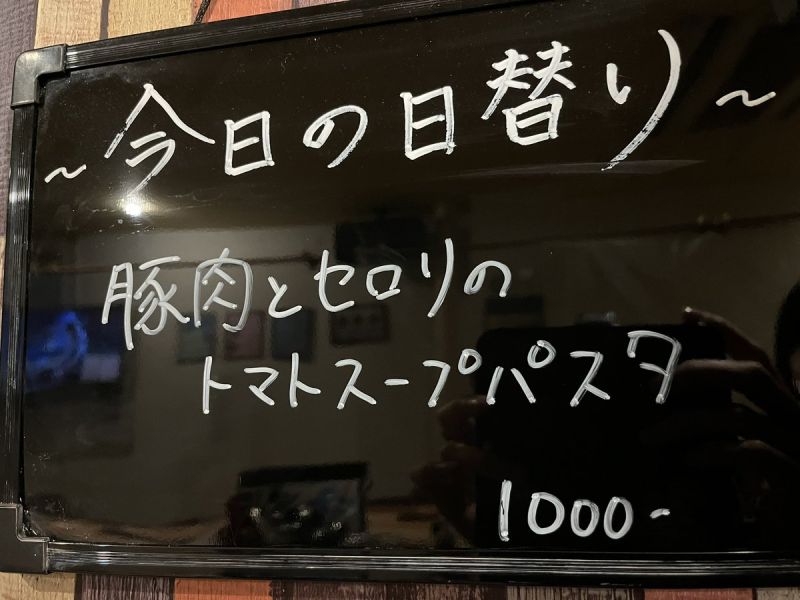 ~今日の日替り~
豚肉とセロリの
トマトスープパスタ
1000-